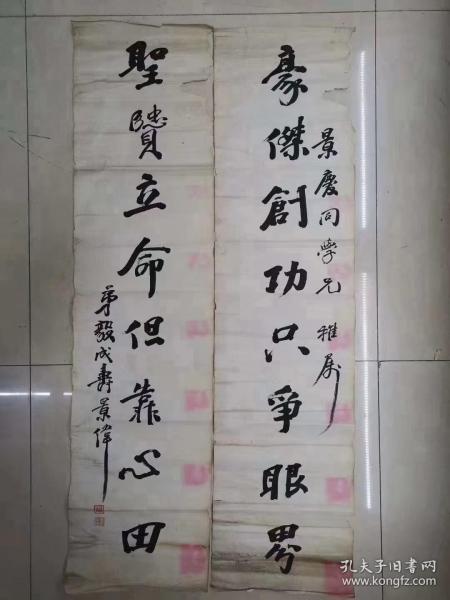 豪傑創功只爭眼界
景慶同學兄 雅屬
聖賢立命但靠心田
弟毅成壽景偉
孔夫子旧书网
www.kongfz.com